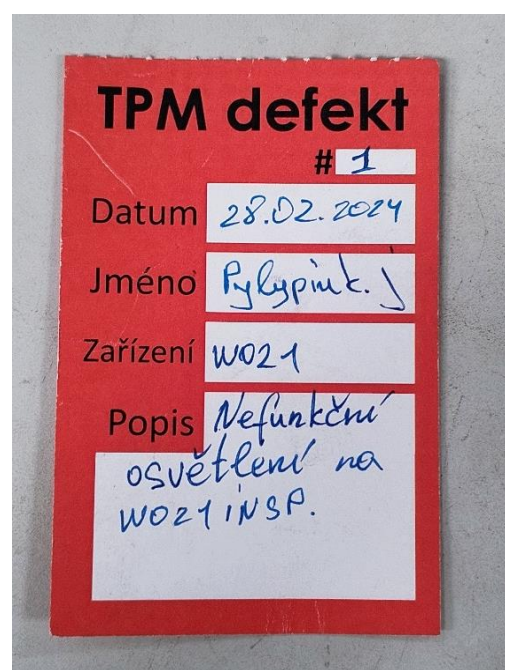 TPM defekt
# 1
Datum 28.02.2024
Jméno Pylypiuk. J
Zařízení W021
Popis Nefunkční
osvětlení na
W021 iNSP.